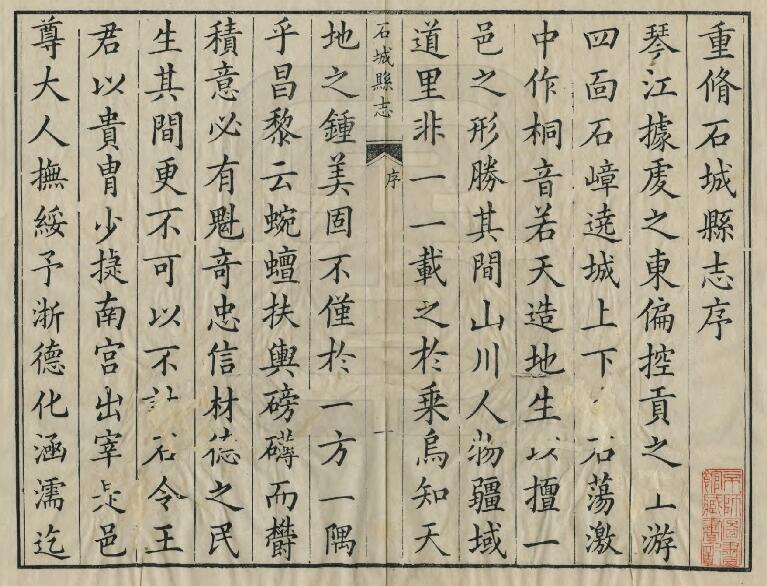 重脩石城縣志序
琴江據䖍之東偏控貢之上游
四面石嶂遶城上下石蕩激
中作桐音若天造地生以擅一
邑之形勝其間山川人物疆域
道里非一一載之於乗烏知天
石城縣志
序
一
地之鍾美固不僅於一方一隅
乎昌黎云蜿蟺扶輿磅礴而欝
積意必有魁竒忠信材德之民
生其間更不可以不誌石令王
君以貴胄少㨗南宮出宰是邑
尊大人撫綏予浙德化涵濡迄